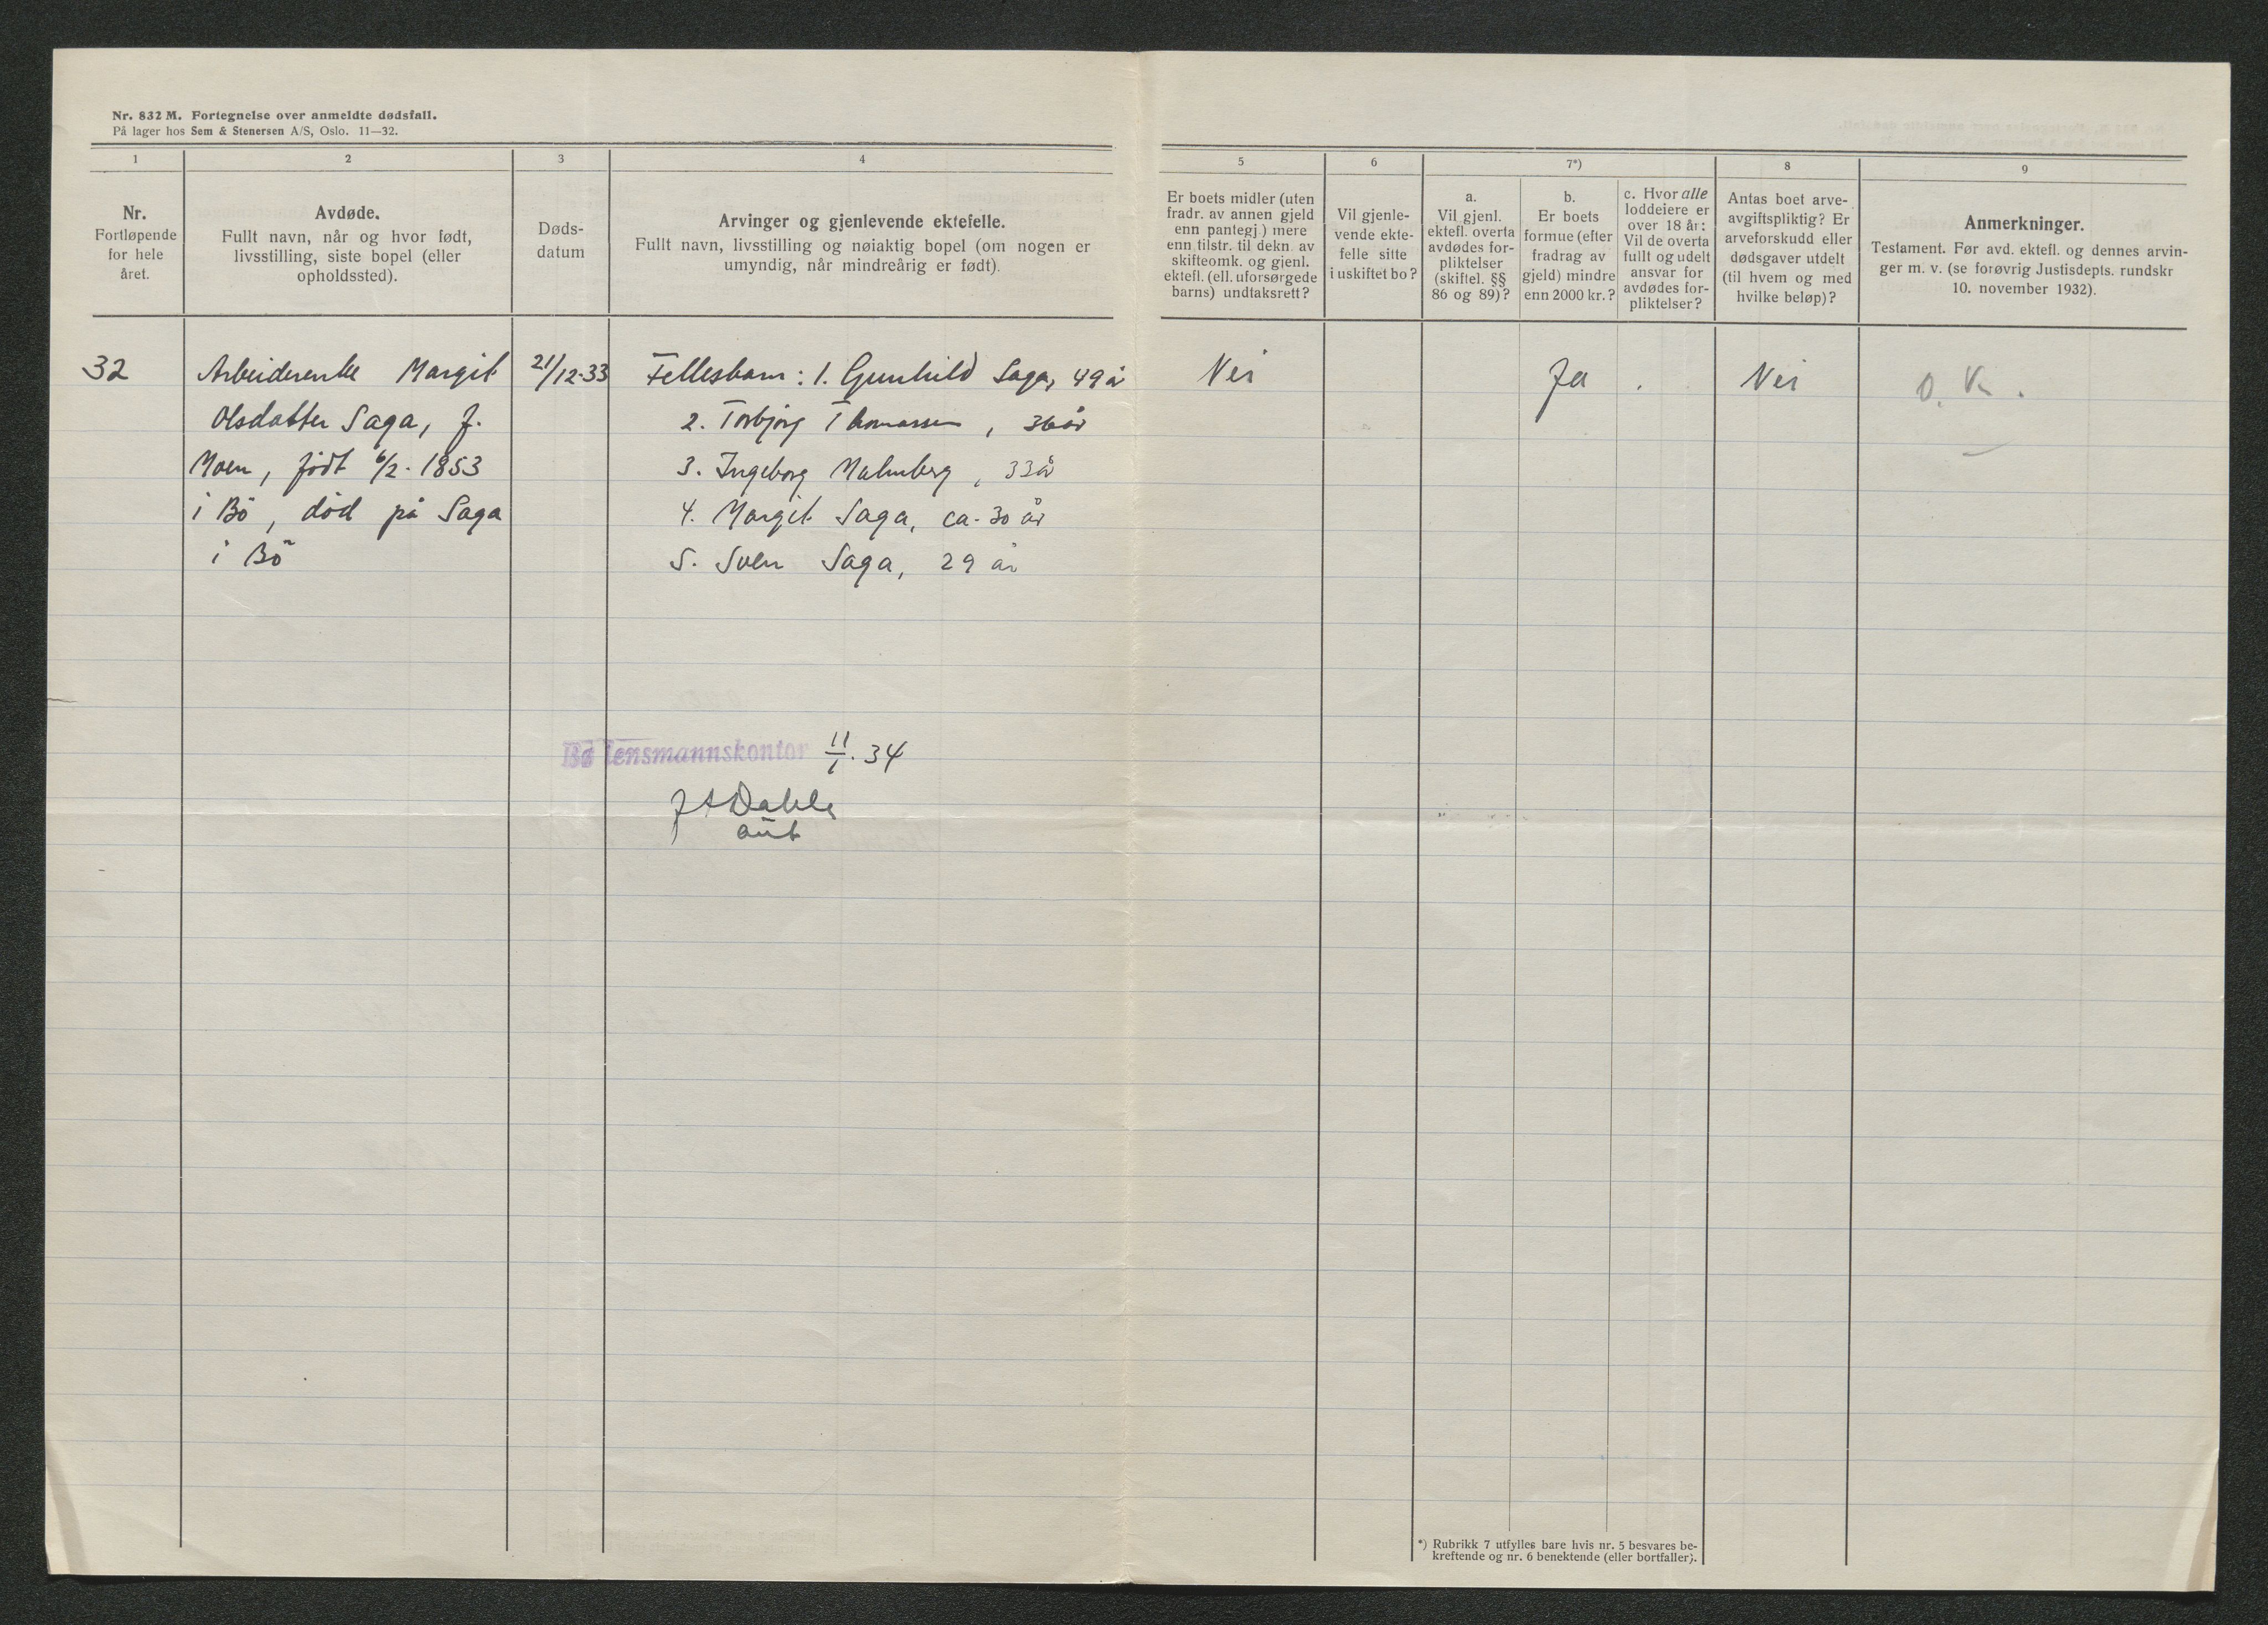 Nr. 832 M. Fortegnelse over anmeldte dødsfall.
På lager hos Sem & Stenersen A/S, Oslo. 11—32.
1
2
3
4
5
6
7*)
8
9
Nr.
Fortløpende
for hele
året.
Avdøde.
Fullt navn, når og hvor født,
livsstilling, siste bopel (eller
opholdssted).
Døds-
datum
Arvinger og gjenlevende ektefelle.
Fullt navn, livsstilling og nøiaktig bopel (om nogen er
umyndig, når mindreårig er født).
Er boets midler (uten
fradr. av annen gjeld
enn pantegj.) mere
enn tilstr. til dekn. av
skifteomk. og gjenl.
ektefl. (ell. uforsørgede
barns) undtaksrett?
Vil gjenle-
vende ekte-
felle sitte
i uskiftet bo?
a.
Vil gjenl.
ektefl. overta
avdødes for-
pliktelser
(skiftel. §§
86 og 89)?
b.
Er boets
formue (efter
fradrag av
gjeld) mindre
enn 2000 kr.?
c. Hvor alle
loddeiere er
over 18 år:
Vil de overta
fullt og udelt
ansvar for
avdødes for-
pliktelser?
Antas boet arve-
avgiftspliktig? Er
arveforskudd eller
dødsgaver utdelt
(til hvem og med
hvilke beløp)?
Anmerkninger.
Testament. Før avd. ektefl. og dennes arvin-
ger m. v. (se forøvrig Justisdepts. rundskr
10. november 1932).
32
Arbeiderenke Margit
Olsdatter Saga, f.
Moen, født 6/2. 1853
i Bö, död på Saga
i Bö
21/12-33
Fellesbarn: 1. Gunhild Saga, 49 år
2. Torbjørg Thomassen, 36 år
3. Ingeborg Malmberg, 33 år
4. Margit Saga, ca. 30 år
5. Sven Saga, 29 år
Nei
Ja
Nei
O. K.
Bø lensmannskontor 11/1. 34
J A Dahle
aut
*) Rubrikk 7 utfylles bare hvis nr. 5 besvares be-
kreftende og nr. 6 benektende (eller bortfaller).